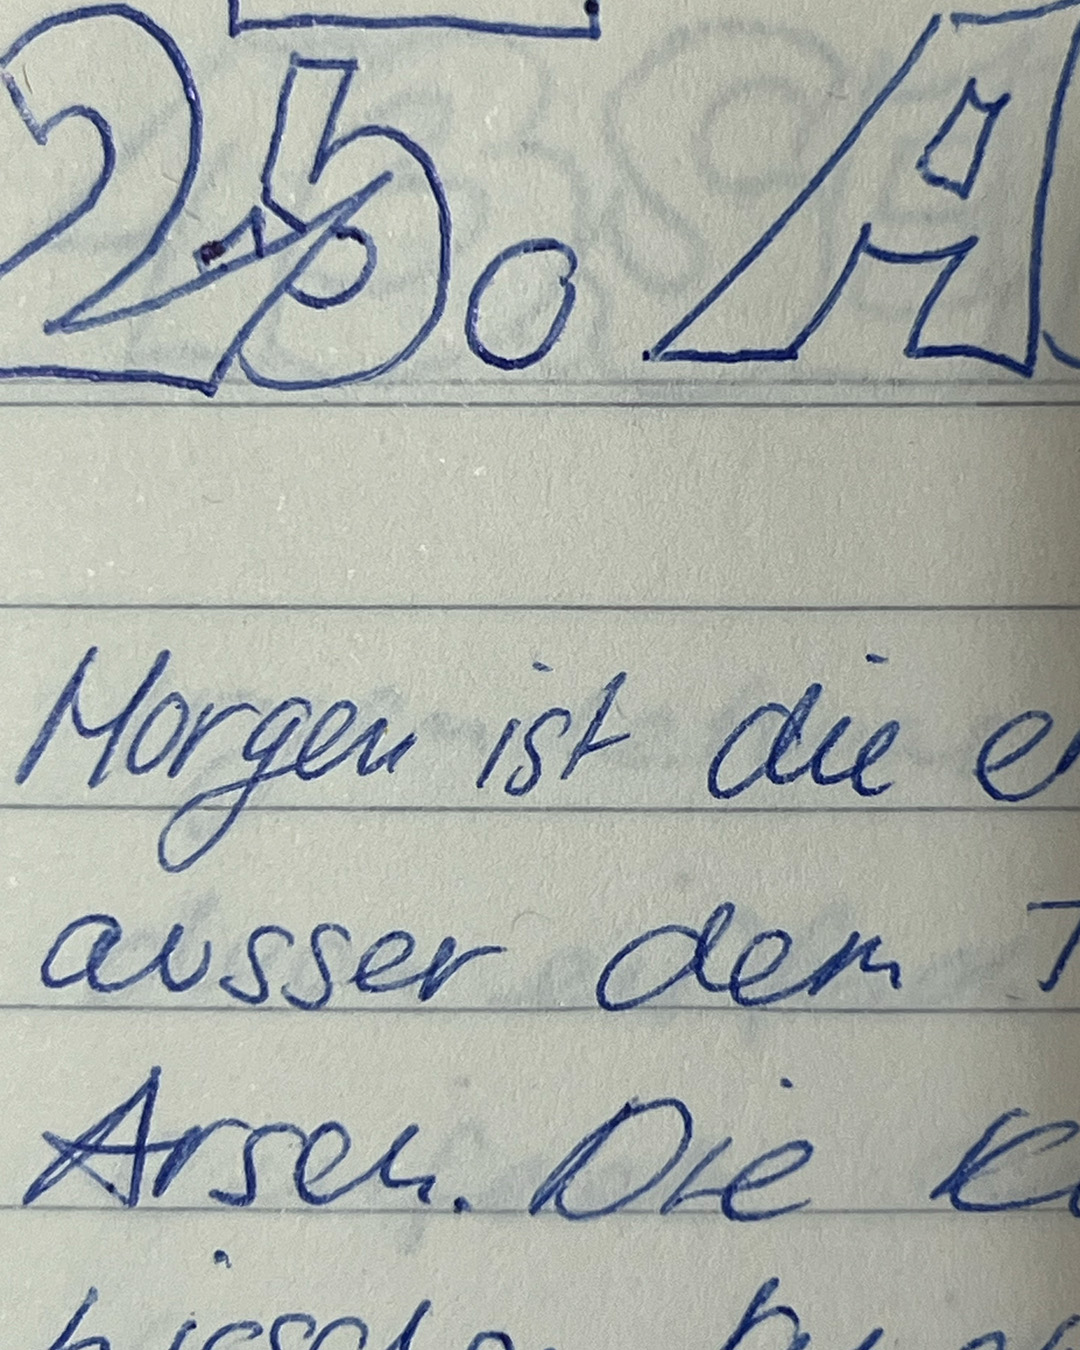 25. A
Morgen ist die e
ausser dem T
Arsen. Die K
bisschen